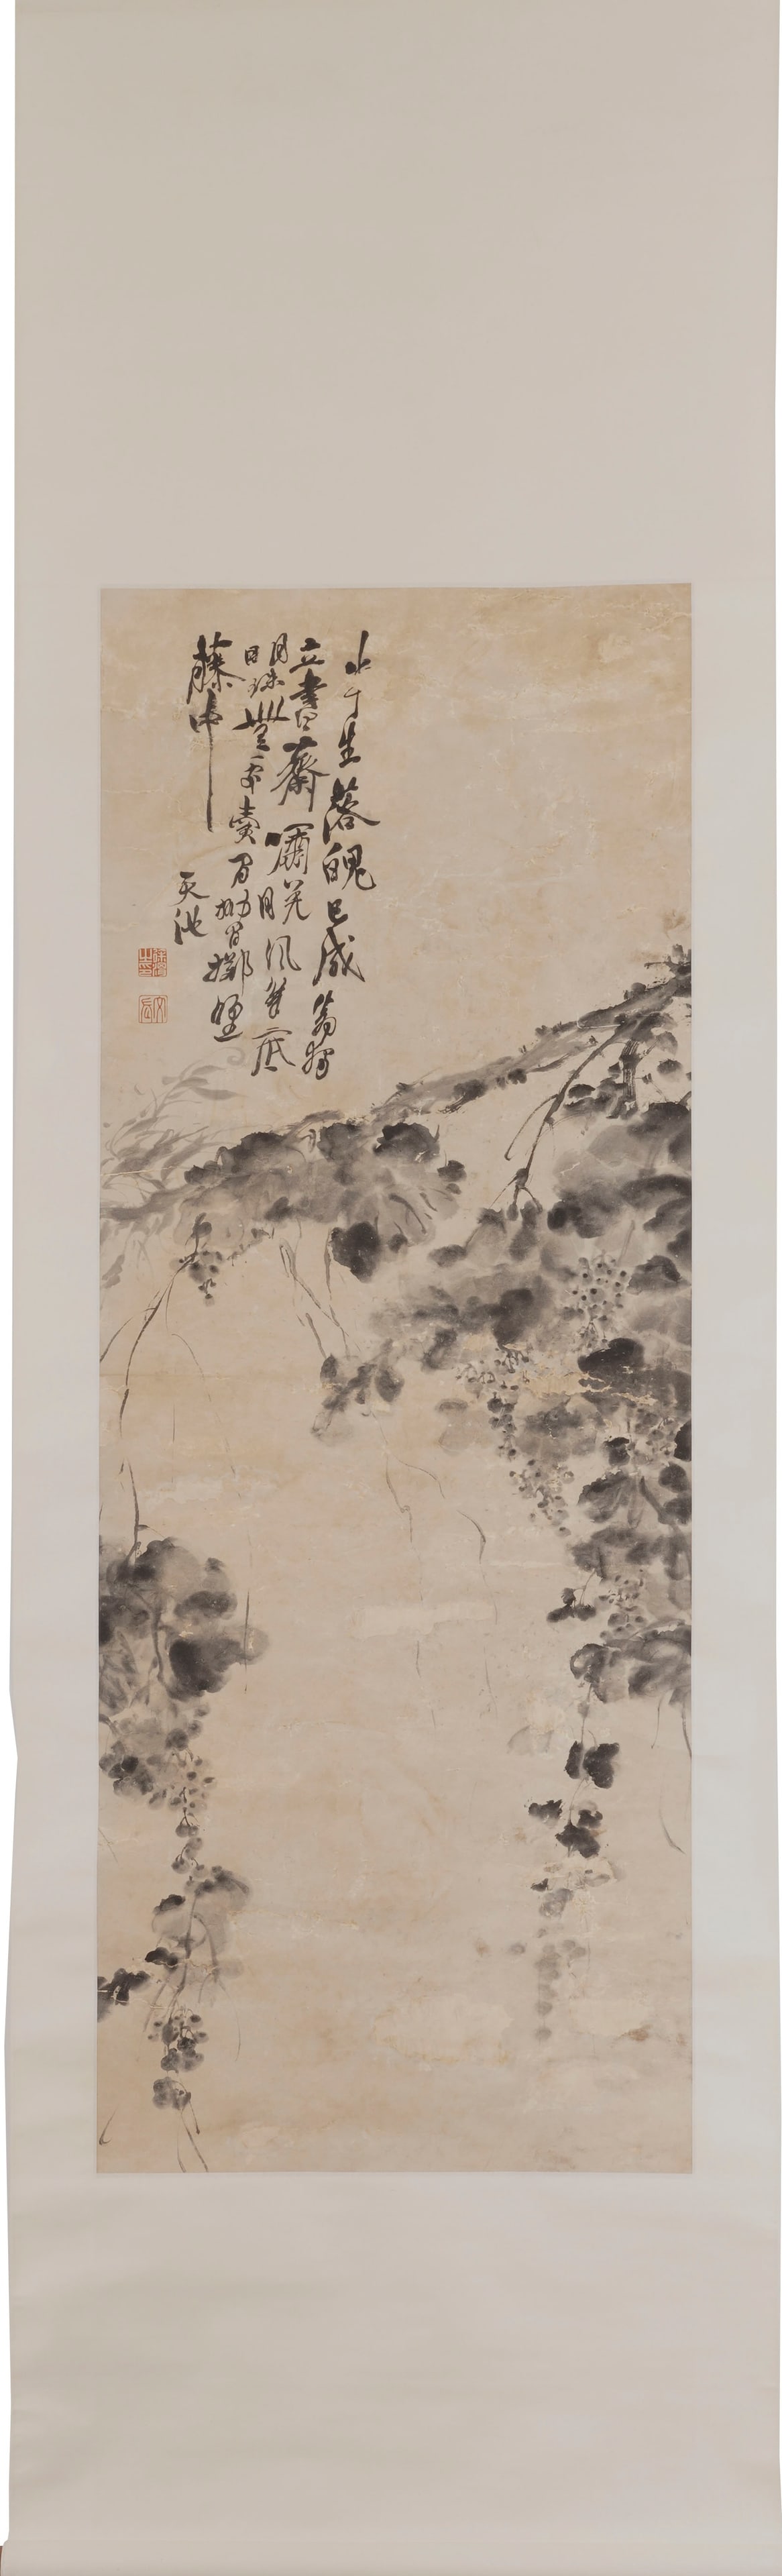 半生落魄已成翁獨
立書齋嘯晚風筆底
明珠無處賣閒拋閒擲野
藤中
天池
徐渭之印
文長